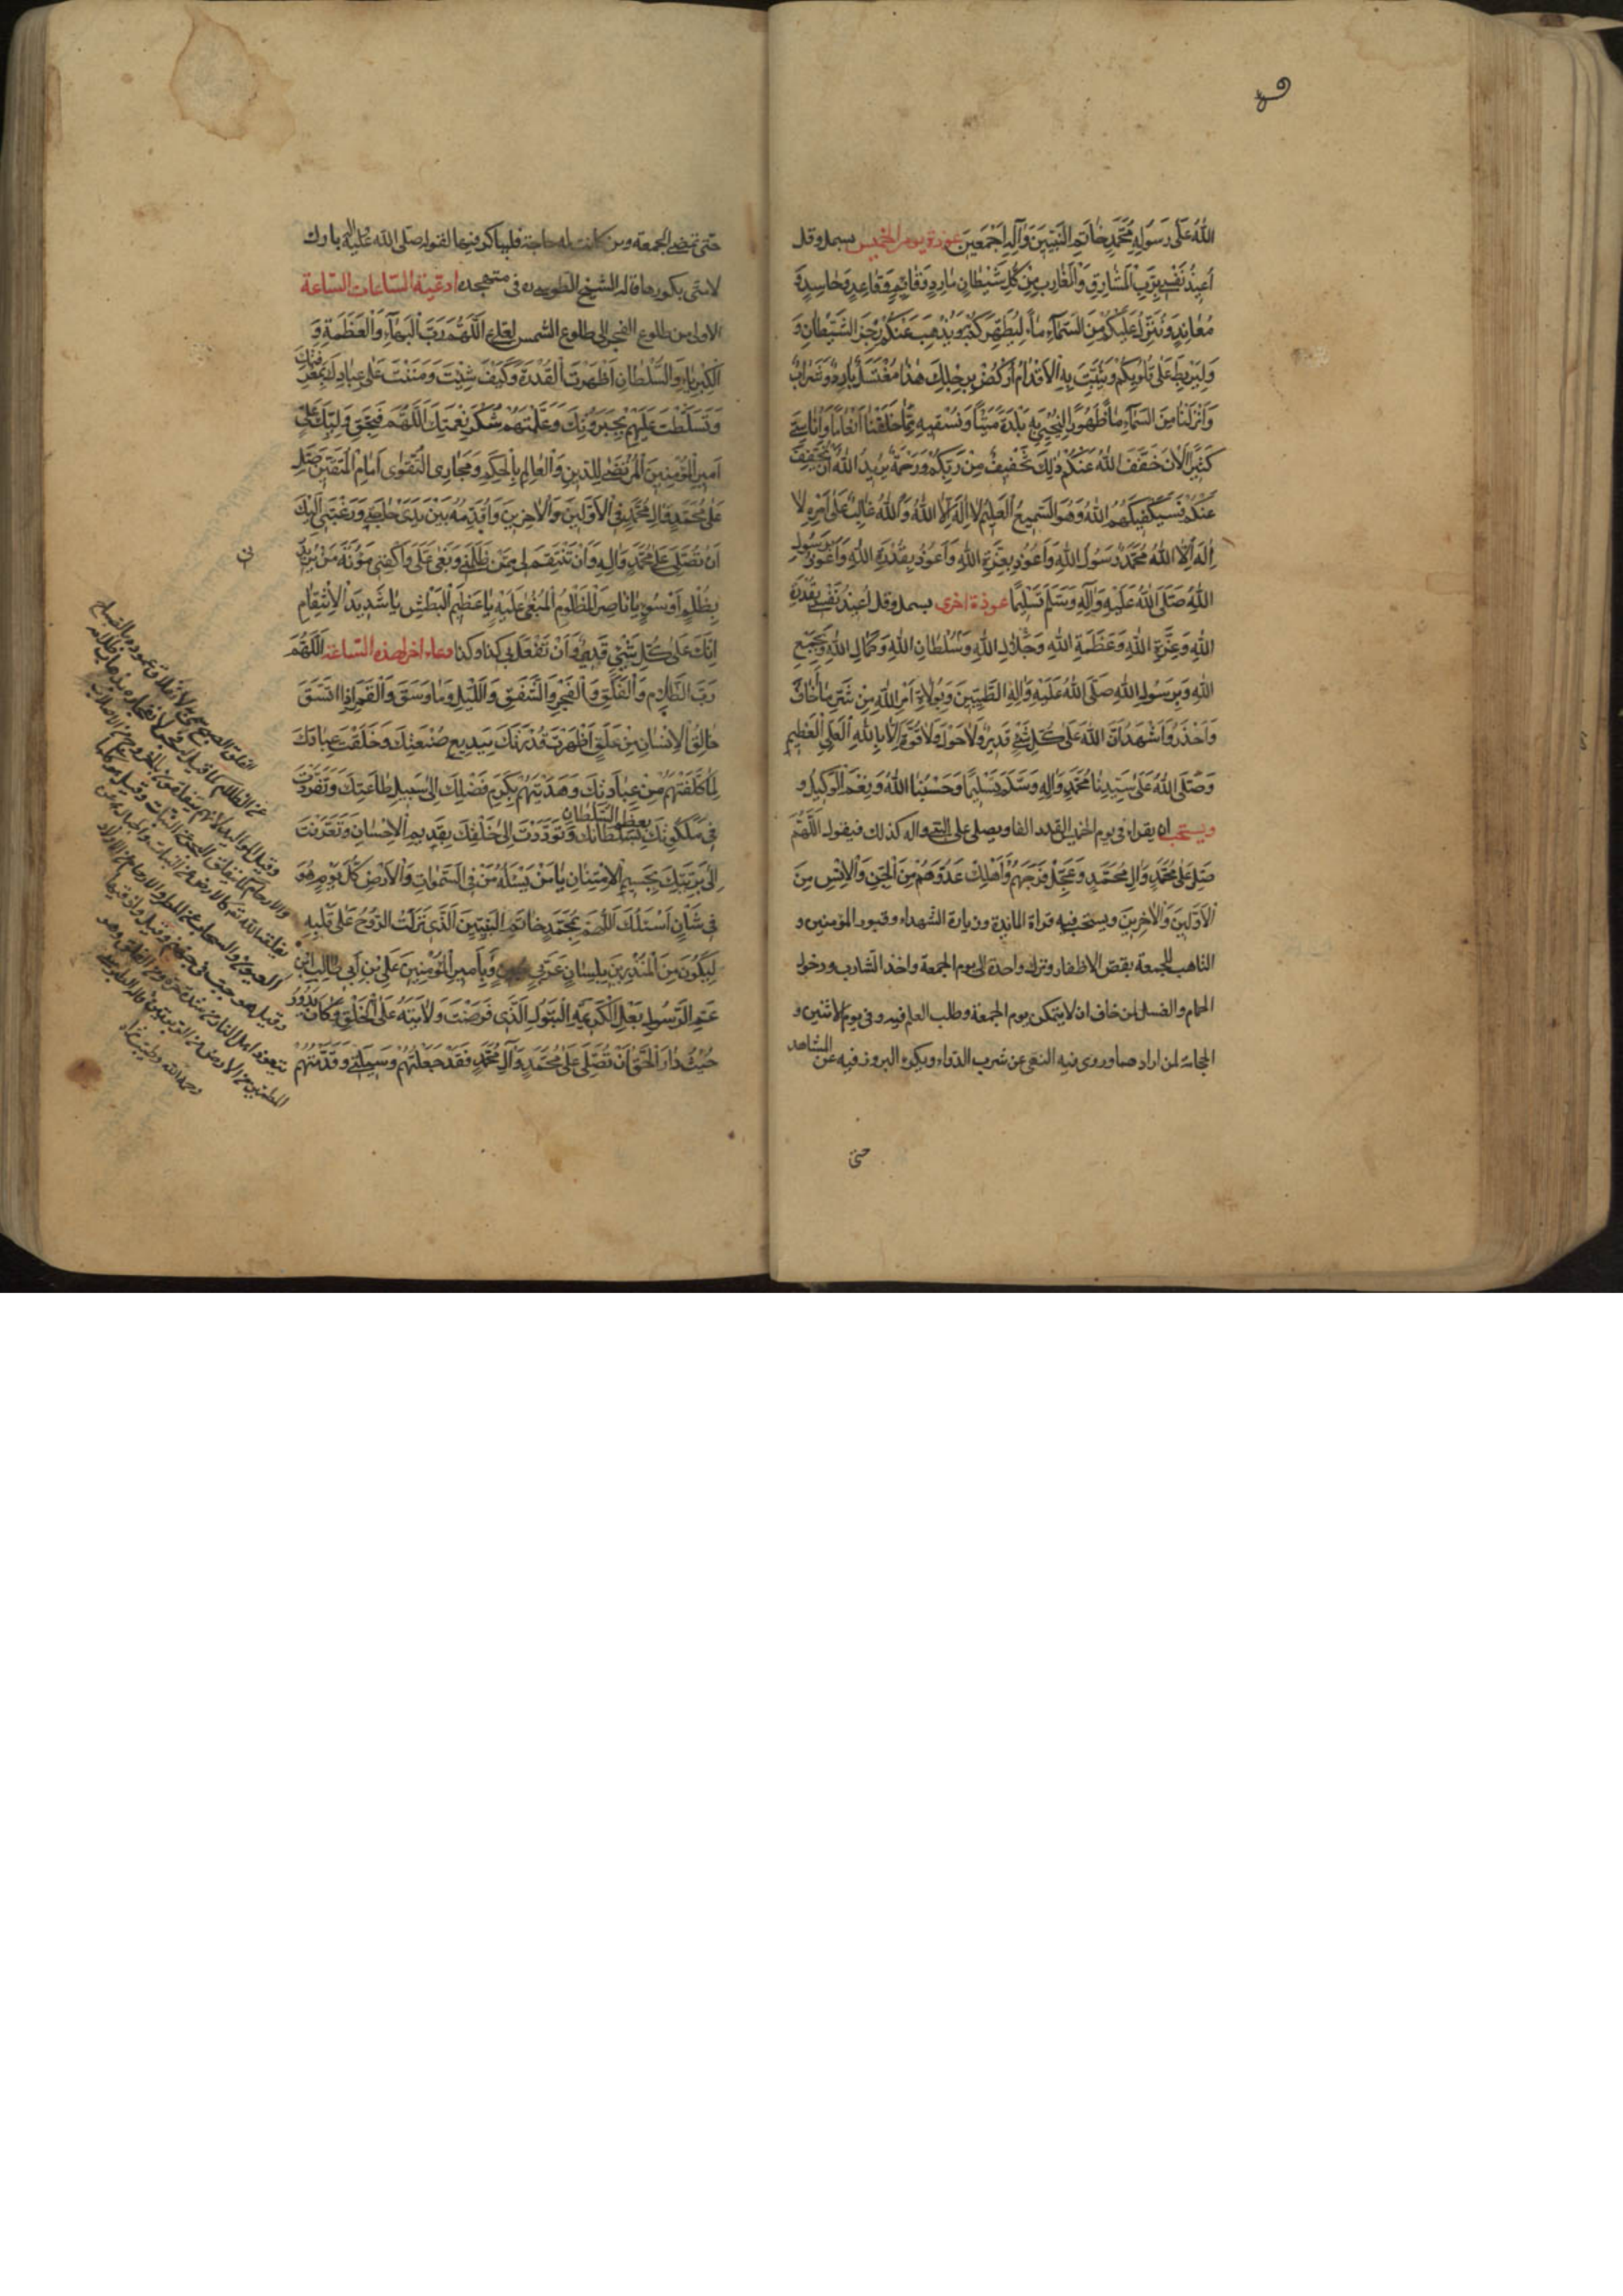 اللّٰهُ عَلٰى رَسُولِهِ مُحَمَّدٍ خَاتَمِ النَّبِيّينَ وَآلِهِ اَجْمَعينَ عوذة يوم الخميس بسمل وقل
اُعيذُ نَفْسي بِرَبِّ الْمَشَارِقِ وَالْمَغَارِبِ مِنْ كُلِّ شَيْطَانٍ مَارِدٍ وَقَائِمٍ وَقَاعِدٍ وَحَاسِدٍ وَ
مُعَانِدٍ وَيُنَزِّلُ عَلَيْكُمْ مِنَ السَّمَاءِ مَاءً لِيُطَهِّرَكُمْ بِهِ وَيُذْهِبَ عَنْكُمْ رِجْزَ الشَّيْطَانِ وَ
وَلِيَرْبِطَ عَلٰى قُلُوبِكُمْ وَيُثَبِّتَ بِهِ الْاَقْدَامَ اُرْكُضْ بِرِجْلِكَ هٰذَا مُغْتَسَلٌ بَارِدٌ وَشَرَابٌ
وَاَنْزَلْنَا مِنَ السَّمَاءِ مَاءً طَهُورًا لِنُحْيِيَ بِهِ بَلْدَةً مَيْتًا وَنُسْقِيَهُ مِمَّا خَلَقْنَا اَنْعَامًا وَاَنَاسِيَّ
كَثيرًا اَلْآنَ خَفَّفَ اللّٰهُ عَنْكُمْ ذٰلِكَ تَخْفيفٌ مِنْ رَبِّكُمْ وَرَحْمَةٌ يُريدُ اللّٰهُ اَنْ يُخَفِّفَ
عَنْكُمْ فَسَيَكْفيكَهُمُ اللّٰهُ وَهُوَ السَّميعُ الْعَليمُ لَا اِلٰهَ اِلَّا اللّٰهُ وَاللّٰهُ غَالِبٌ عَلٰى اَمْرِهِ لَا
اِلٰهَ اِلَّا اللّٰهُ مُحَمَّدٌ رَسُولُ اللّٰهِ وَاَعُوذُ بِعِزَّةِ اللّٰهِ وَاَعُوذُ بِقُدْرَةِ اللّٰهِ وَاَعُوذُ بِرَسُولِ
اللّٰهِ صَلَّى اللّٰهُ عَلَيْهِ وَآلِهِ وَسَلَّمَ تَسْليمًا عوذة اخرى بسمل وقل اُعيذُ نَفْسي بِقُدْرَةِ
اللّٰهِ وَعِزَّةِ اللّٰهِ وَعَظَمَةِ اللّٰهِ وَجَلَالِ اللّٰهِ وَسُلْطَانِ اللّٰهِ وَكَمَالِ اللّٰهِ وَبِجَمْعِ
اللّٰهِ وَبِرَسُولِ اللّٰهِ صَلَّى اللّٰهُ عَلَيْهِ وَآلِهِ الطَّيِّبينَ وَبِوُلَاةِ اَمْرِ اللّٰهِ مِنْ شَرِّ مَا اَخَافُ
وَاَحْذَرُ وَاَشْهَدُ اَنَّ اللّٰهَ عَلٰى كُلِّ شَيْءٍ قَديرٌ وَلَا حَوْلَ وَلَا قُوَّةَ اِلَّا بِاللّٰهِ الْعَلِيِّ الْعَظيمِ
وَصَلَّى اللّٰهُ عَلٰى سَيِّدِنَا مُحَمَّدٍ وَآلِهِ وَسَلَّمَ تَسْليمًا وَحَسْبُنَا اللّٰهُ وَنِعْمَ الْوَكيلُ و
ويستحب ان يقرا في يوم الخميس القدر الفا ويصلي على النبي واله كذلك فيقول اَللّٰهُمَّ
صَلِّ عَلٰى مُحَمَّدٍ وَآلِ مُحَمَّدٍ وَعَجِّلْ فَرَجَهُمْ وَاَهْلِكْ عَدُوَّهُمْ مِنَ الْجِنِّ وَالْاِنْسِ مِنَ
الْاَوَّلينَ وَالْآخِرينَ ويستحب فيه قراة المائدة وزيارة الشهداء وقبور المؤمنين و
التاهب للجمعة بقص الاظفار وترك واحدة الى يوم الجمعة واخذ الشارب ودخول
الحمام والغسل لمن خاف ان لا يتمكن يوم الجمعة وطلب العلم فيه وفي يوم الاثنين و
الحجامة لمن اراد صما وروى فيه النهى عن شرب الدواء ويكره البروز فيه عن المشاهد
حتى
حتى تمضي الجمعة ومن كانت له حاجة فليباكر فيها لقوله صلى الله عليه واله بارك
لامتي بكورها قاله الشيخ الطوسي ره في متهجده ادعية الساعات الساعة
الاولى من طلوع الفجر الى طلوع الشمس لعلي ع اَللّٰهُمَّ رَبَّ الْبَهَاءِ وَالْعَظَمَةِ وَ
الْكِبْرِيَاءِ وَالسُّلْطَانِ اَظْهَرْتَ الْقُدْرَةَ كَيْفَ شِئْتَ وَمَنَنْتَ عَلٰى عِبَادِكَ بِمَعْرِفَتِكَ
وَتَسَلَّطْتَ عَلَيْهِمْ بِجَبَرُوتِكَ وَعَلَّمْتَهُمْ شُكْرَ نِعْمَتِكَ اَللّٰهُمَّ فَبِحَقِّ وَلِيِّكَ عَلِيٍّ
اَميرِ الْمُؤْمِنينَ الْمُرْتَضٰى لِلدّينِ وَالْعَالِمِ بِالْحُكْمِ وَمَجَارِي التَّقْوٰى اِمَامِ الْمُتَّقينَ صَلِّ
عَلٰى مُحَمَّدٍ وَآلِ مُحَمَّدٍ فِي الْاَوَّلينَ وَالْآخِرينَ وَاُقَدِّمُهُ بَيْنَ يَدَيْ حَوَائِجي وَرَغْبَتي اِلَيْكَ
اَنْ تُصَلِّيَ عَلٰى مُحَمَّدٍ وَآلِهِ وَاَنْ تَنْتَقِمَ لي مِمَّنْ ظَلَمَني وَبَغٰى عَلَيَّ وَاكْفِني مَؤُنَةَ مَنْ يُريدُني
بِظُلْمٍ اَوْ سُوءٍ يَا نَاصِرَ الْمَظْلُومِ الْمُبْغٰى عَلَيْهِ يَا عَظيمَ الْبَطْشِ يَا شَديدَ الْاِنْتِقَامِ
اِنَّكَ عَلٰى كُلِّ شَيْءٍ قَديرٌ وَاَنْ تَفْعَلَ بي كذا وكذا دعاء اخر لهذه الساعة اَللّٰهُمَّ
رَبَّ الظَّلَامِ وَالْفَلَقِ وَالْفَجْرِ وَالشَّفَقِ وَاللَّيْلِ وَمَا وَسَقَ وَالْقَمَرِ اِذَا اتَّسَقَ
خَالِقَ الْاِنْسَانِ مِنْ عَلَقٍ اَظْهَرْتَ قُدْرَتَكَ بِبَديعِ صُنْعَتِكَ وَخَلَقْتَ عِبَادَكَ
لِمَا كَلَّفْتَهُمْ مِنْ عِبَادَتِكَ وَهَدَيْتَهُمْ بِكَرَمِ فَضْلِكَ اِلٰى سَبيلِ طَاعَتِكَ وَتَفَرَّدْتَ
في مَلَكُوتِكَ بِعَظيمِ السُّلْطَانِ وَتَوَدَّدْتَ اِلٰى خَلْقِكَ بِقَديمِ الْاِحْسَانِ وَتَعَرَّفْتَ
اِلٰى بَرِيَّتِكَ بِجَسيمِ الْاِمْتِنَانِ يَا مَنْ يَسْئَلُهُ مَنْ فِي السَّمٰوَاتِ وَالْاَرْضِ كُلَّ يَوْمٍ هُوَ
في شَأْنٍ اَسْئَلُكَ اللّٰهُمَّ بِمُحَمَّدٍ خَاتَمِ النَّبِيّينَ الَّذي نَزَلَتِ الرُّوحُ عَلٰى قَلْبِهِ
لِيَكُونَ مِنَ الْمُنْذِرينَ بِلِسَانٍ عَرَبِيٍّ مُبينٍ وَبِاَميرِ الْمُؤْمِنينَ عَلِيِّ بْنِ اَبي طَالِبٍ ابْنِ
عَمِّ الرَّسُولِ بَعْلِ الْكَريمَةِ الْبَتُولِ الَّذي فَرَضْتَ وَلَايَتَهُ عَلَى الْخَلْقِ وَكَانَ يَدُورُ
حَيْثُ دَارَ الْحَقُّ اَنْ تُصَلِّيَ عَلٰى مُحَمَّدٍ وَآلِ مُحَمَّدٍ فَقَدْ جَعَلْتُهُمْ وَسيلَتي وَقَدَّمْتُهُمْ